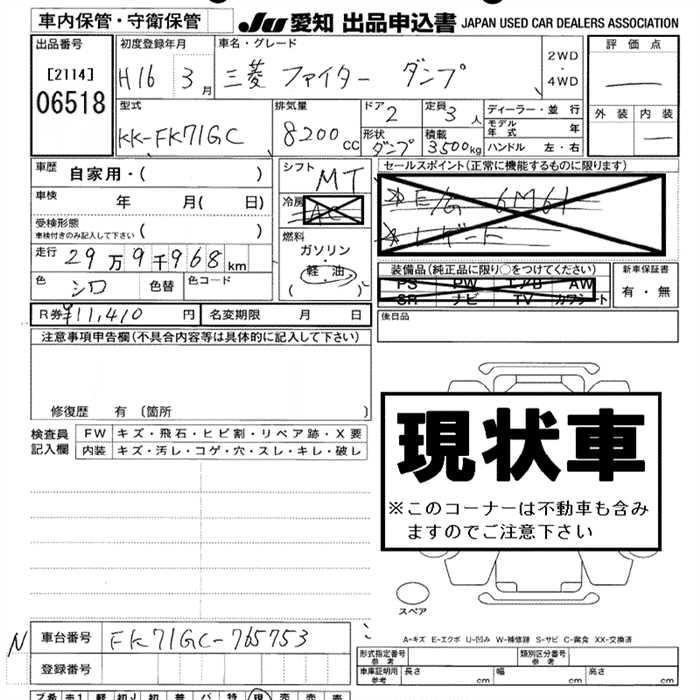 車内保管・守衛保管
JU 愛知 出品申込書 JAPAN USED CAR DEALERS ASSOCIATION
出品番号
[2114]
06518
初度登録年月
H16 3月
車名・グレード
三菱 ファイター ダンプ
2WD
・
4WD
評価点
—
外装 内装
—
型式
KK-FK71GC
排気量
8200cc
ドア
2
形状
ダンプ
定員
3人
積載
3500kg
ディーラー・並行
モデル年式 年
ハンドル 左・右
車歴 自家用・( )
車検 年 月( 日)
受検形態
車検付きのみ記入して下さい ( )
走行 29万9千968km
色 シロ 色替 色コード
シフト
MT
冷房
AC
燃料
ガソリン
・
軽・油
( )
セールスポイント(正常に機能するものに限ります)
※E/G 6M61
装備品(純正品に限り○をつけてください)
PS PW エアB AW
SR ナビ TV カワシート
新車保証書
有・無
R券 ¥11,410円 名変期限 月 日
後日品
注意事項申告欄(不具合内容等は具体的に記入して下さい)
修復歴 有 〔箇所 〕
検査員記入欄
FW キズ・飛石・ヒビ割・リペア跡・X要
内装 キズ・汚レ・コゲ・穴・スレ・キレ・破レ
現状車
※このコーナーは不動車も含み
ますのでご注意下さい
スペア
A-キズ E-エクボ U-凹み W-補修跡 S-サビ C-腐食 XX-交換済
N 車台番号 FK71GC-765753
登録番号
形式指定番号
参考
類別区分番号
参考
車庫証明用
参考
長さ cm 幅 cm 高さ cm